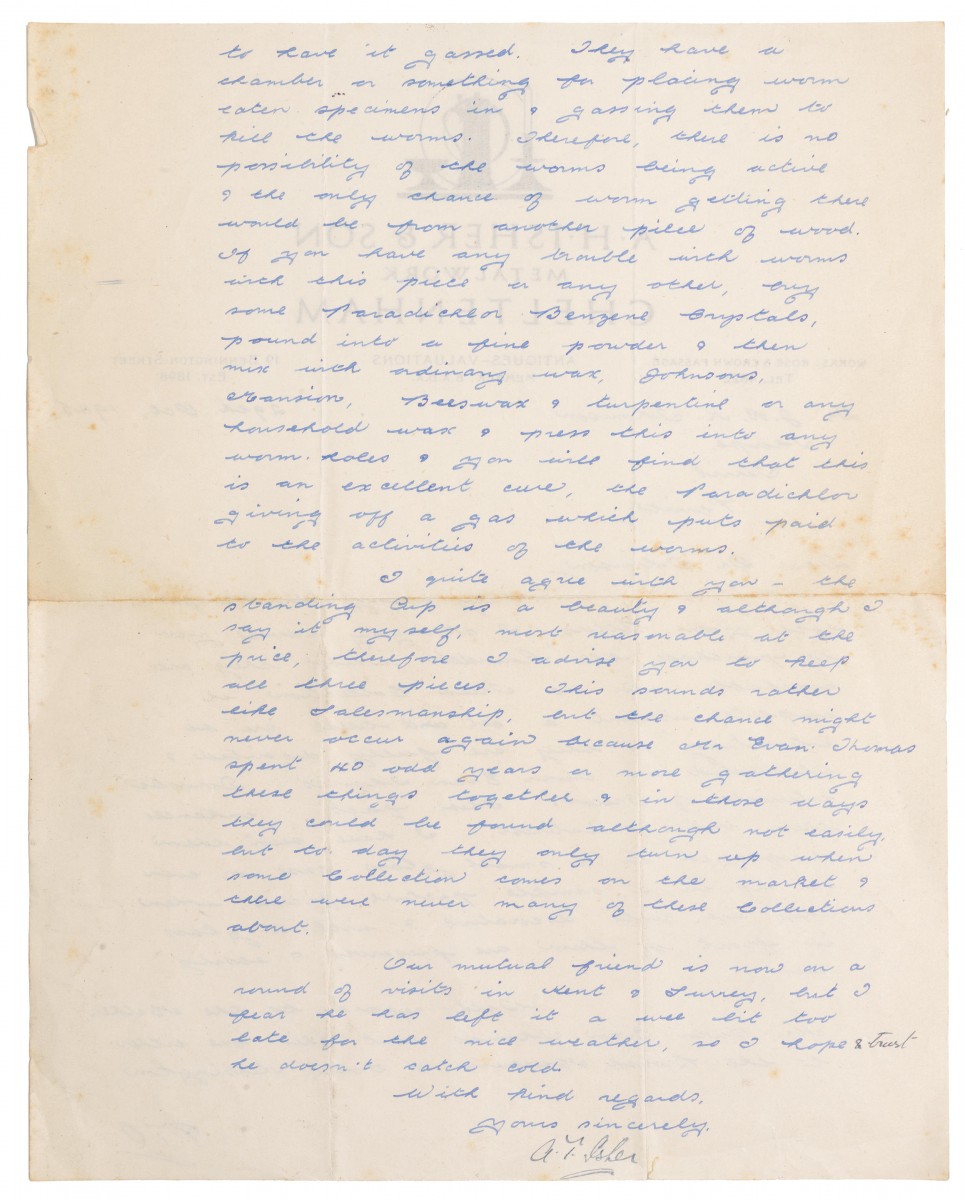 to have it gassed. They have a
chamber or something for placing worm
eaten specimens in & gassing them to
kill the worms. Therefore, there is no
possibility of the worms being active
& the only chance of worm getting there
would be from another piece of wood.
If you have any trouble with worms
with this piece or any other, try
some Paradichlor Benzene Crystals,
pound into a fine powder & then
mix with ordinary wax, Johnsons,
Mansion, Beeswax & turpentine or any
household wax & press this into any
worm-holes & you will find that this
is an excellent cure, the Paradichlor
giving off a gas which puts paid
to the activities of the worms.
I quite agree with you – the
standing Cup is a beauty & although I
say it myself, most reasonable at the
price, therefore I advise you to keep
all three pieces. This sounds rather
like Salesmanship, but the chance might
never occur again because Mr Evan-Thomas
spent 40 odd years or more gathering
these things together & in those days
they could be found although not easily,
but to-day they only turn up when
some Collection comes on the market &
there were never many of these Collections
about.
Our mutual friend is now on a
round of visits in Kent & Surrey, but I
fear he has left it a wee bit too
late for the nice weather, so I hope & trust
he doesn't catch cold.
With kind regards,
Yours sincerely,
A. T. Isher
A. H. ISHER & SON
METALWORK
CHELTENHAM
ANTIQUES – VALUATIONS